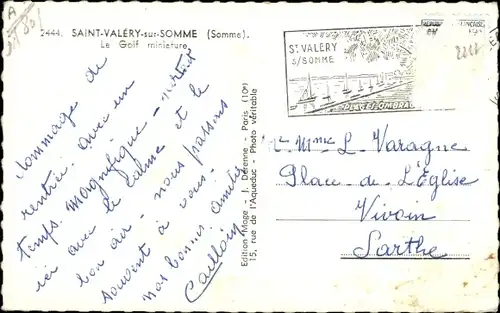 2444. SAINT-VALÉRY-sur-SOMME (Somme).
Le Golf miniature
Dommage de
rentrer avec un
temps magnifique - surtout
ici avec le calme et le
bon air - nous pensons
souvent à vous -
nos bonnes amitiés
Edition "Mage" - J. Dérenne - Paris (10e)
15, rue de l'Aqueduc - Photo véritable
ST VALÉRY
S/SOMME
PLAGE OMBRAG
Mme L. Varagne
Place de L'Église
Vivoin
Sarthe